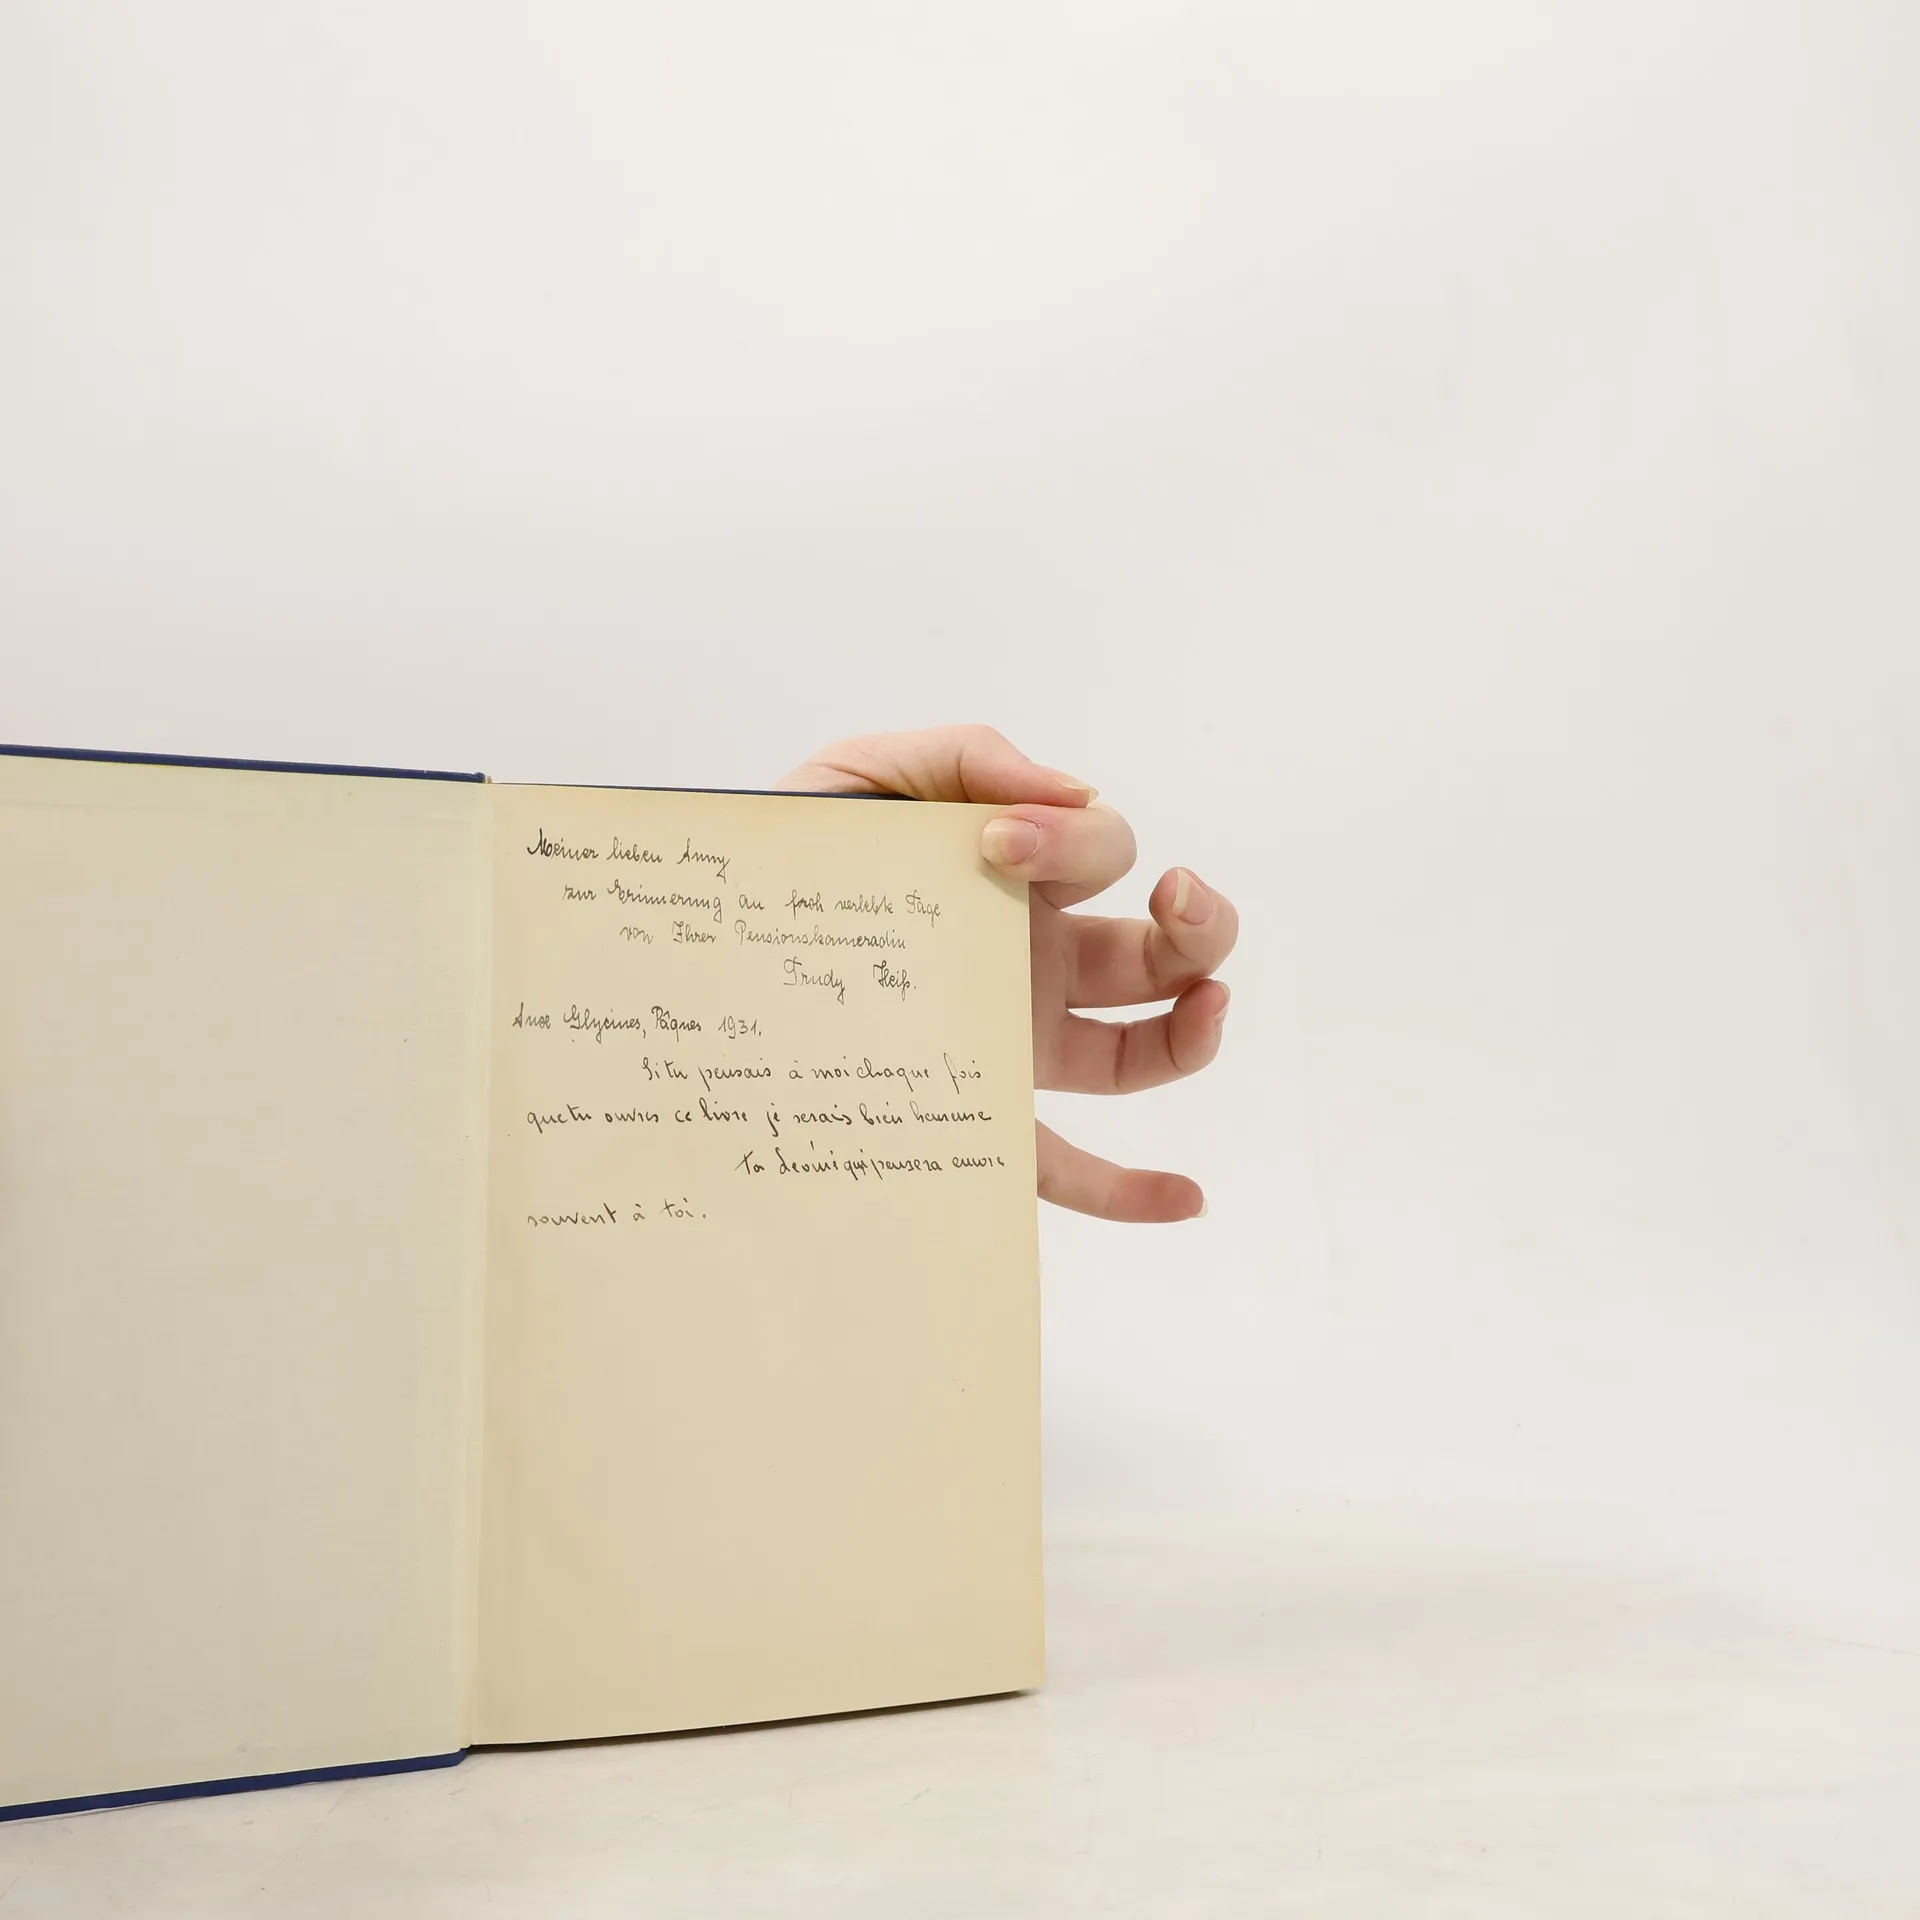 Meiner lieben Anny
zur Erinnerung an froh verlebte Tage
von Ihrer Pensionskameradin
Trudy Heiß.
Aux Glycines, Pâques 1931.
Si tu pensais à moi chaque fois
que tu ouvres ce livre je serais bien heureuse
ta qui pensera encore
souvent à toi.